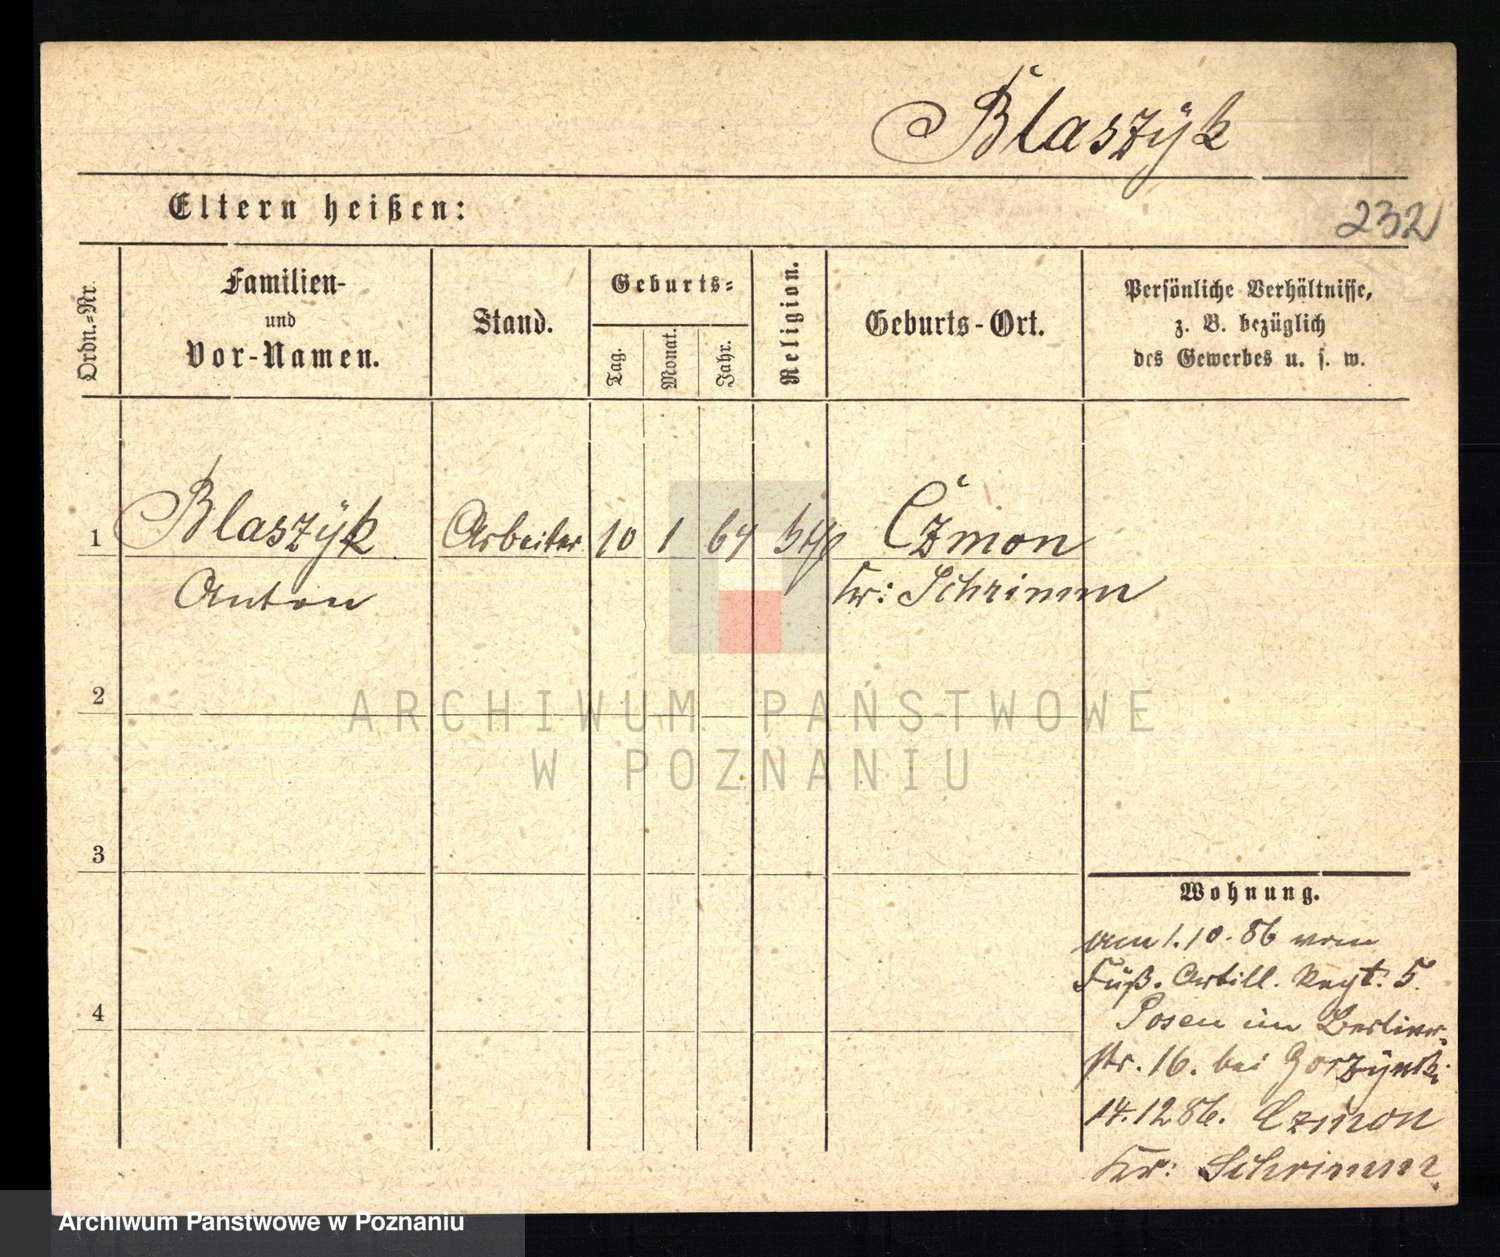 Blaszÿk
Eltern heißen:
232
Ordn.-Nr.
Familien-
und
Vor-Namen.
Stand.
Geburts-
Tag.
Monat.
Jahr.
Religion.
Geburts-Ort.
Persönliche Verhältnisse,
z. B. bezüglich
des Gewerbes u. s. w.
1 Blaszÿk Arbeiter 10 1 64 Czmon
Anton Kr: Schrimm
2
ARCHIWUM PAŃSTWOWE
W POZNANIU
3
Wohnung.
am 1.10.86 vom
Fuß. Artill. Regt. 5.
4
Posen im Berliner-
str. 16. bei Gorzÿnski
14.12 86. Czmon
Kr: Schrimm.
Archiwum Państwowe w Poznaniu